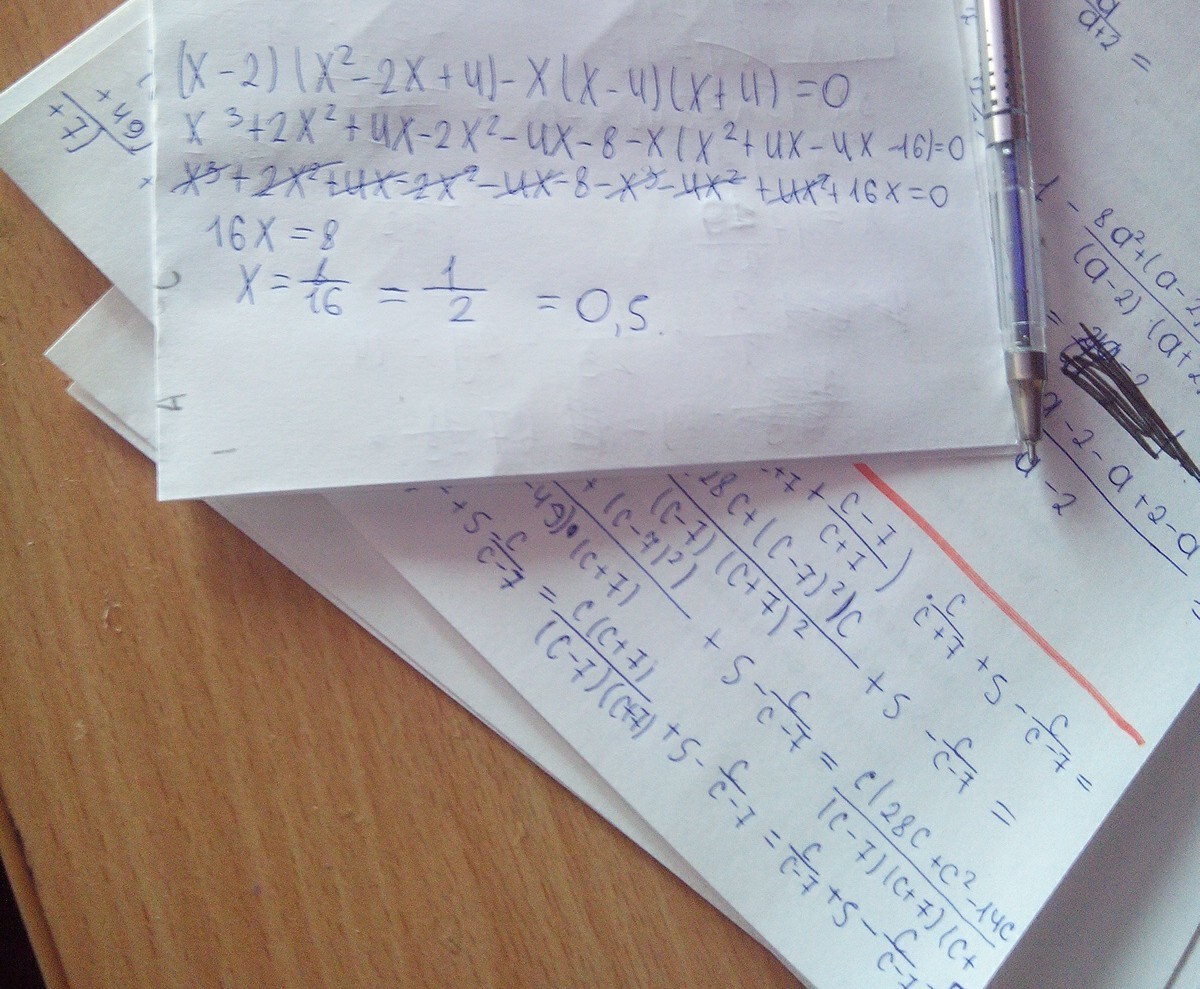 (x-2)(x²-2x+4)-x(x-4)(x+4)=0
x³+2x²+4x-2x²-4x-8-x(x²+4x-4x-16)=0
x³+2x²+4x-2x²-4x-8-x³-4x²+4x²+16x=0
16x=8
x= = 1/2 = 0,5.
a/a+2 =
1 - 8a²+(a-2)
(a-2)(a+2)
a-2-a+2-a
a-2
+7 + c-7/c+7) · c/c+7 + 5 - c/c-7 =
28c+(c-7)²)c/(c-7)(c+7)² + 5 - c/c-7 =
+(c-7)²)
(c+7) + 5 - c/c-7 = c(28c+c²-14c/(c-7)(c+7)(c+
+5 c/c-7 = c(c+7)/(c-7)(c+7) + 5 - c/c-7 = c/c-7 + 5 - c/c-7